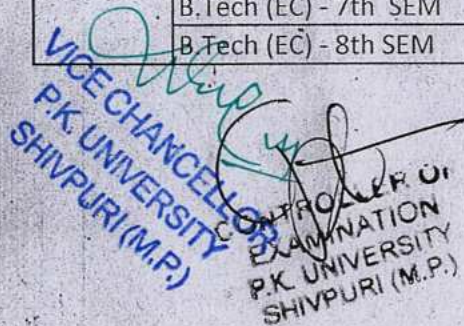 B.Tech (EC) - 7th SEM
B.Tech (EC) - 8th SEM
VICE CHANCELLOR
P.K. UNIVERSITY
SHIVPURI (M.P.)
CONTROLLER OF
EXAMINATION
P.K. UNIVERSITY
SHIVPURI (M.P.)